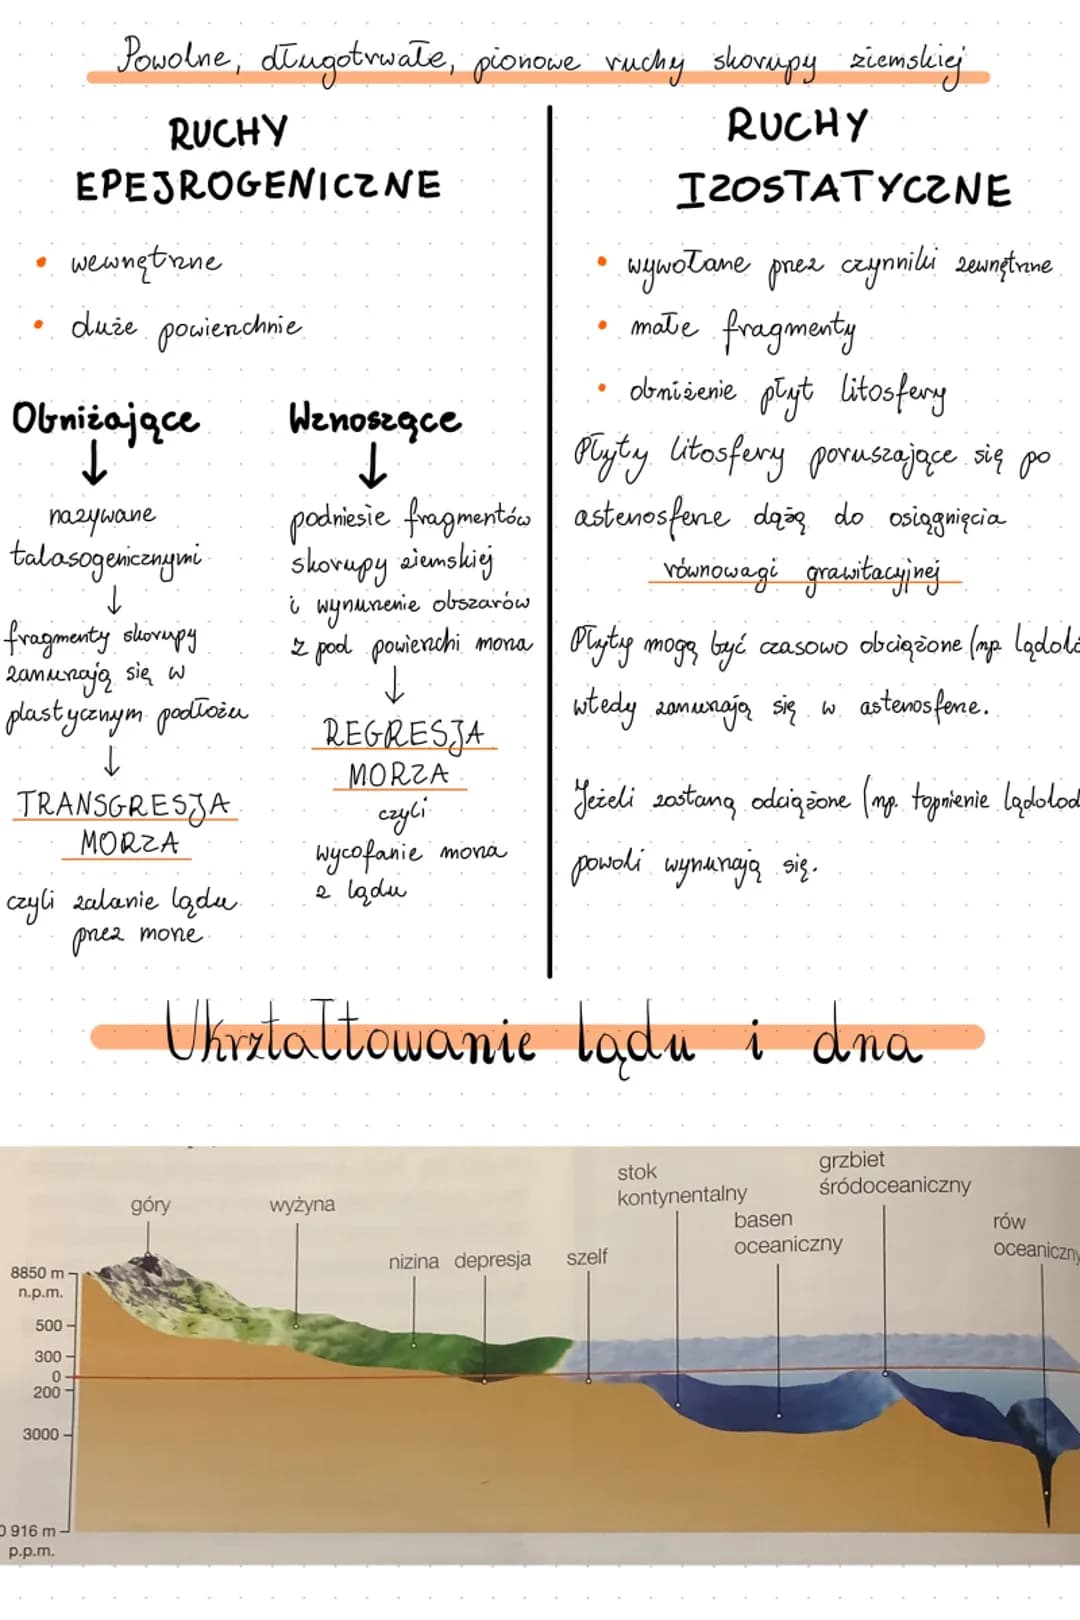 Powolne, długotrwałe, pionowe ruchy skorupy ziemskiej
RUCHY
EPEJROGENICZNE
• wewnętrzne
• duże powierzchnie
Obniżające
↓
nazywane
talasogenicznymi
↓
fragmenty skorupy
zanurzają się w
plastycznym podłożu
↓
TRANSGRESJA
MORZA
czyli zalanie lądu
przez morze
Wznoszące
↓
podniesie fragmentów
skorupy ziemskiej
i wynurzenie obszarów
z pod powierzchi morza
↓
REGRESJA
MORZA
czyli
wycofanie morza
z lądu
RUCHY
IZOSTATYCZNE
• wywołane przez czynniki zewnętrzne
• małe fragmenty
• obniżenie płyt litosfery
Płyty litosfery poruszające się po
astenosferze dążą do osiągnięcia
równowagi grawitacyjnej
Płyty mogą być czasowo obciążone (np. lądoló
wtedy zanurzają się w astenosferze.
Jeżeli zostaną odciążone (np. topnienie lądolod
powoli wynurzają się.
Ukrztałtowanie lądu i dna
góry
wyżyna
nizina
depresja
szelf
stok
kontynentalny
basen
oceaniczny
grzbiet
śródoceaniczny
rów
oceaniczny
8850 m
n.p.m.
500
300
0
200
3000
0 916 m
p.p.m.